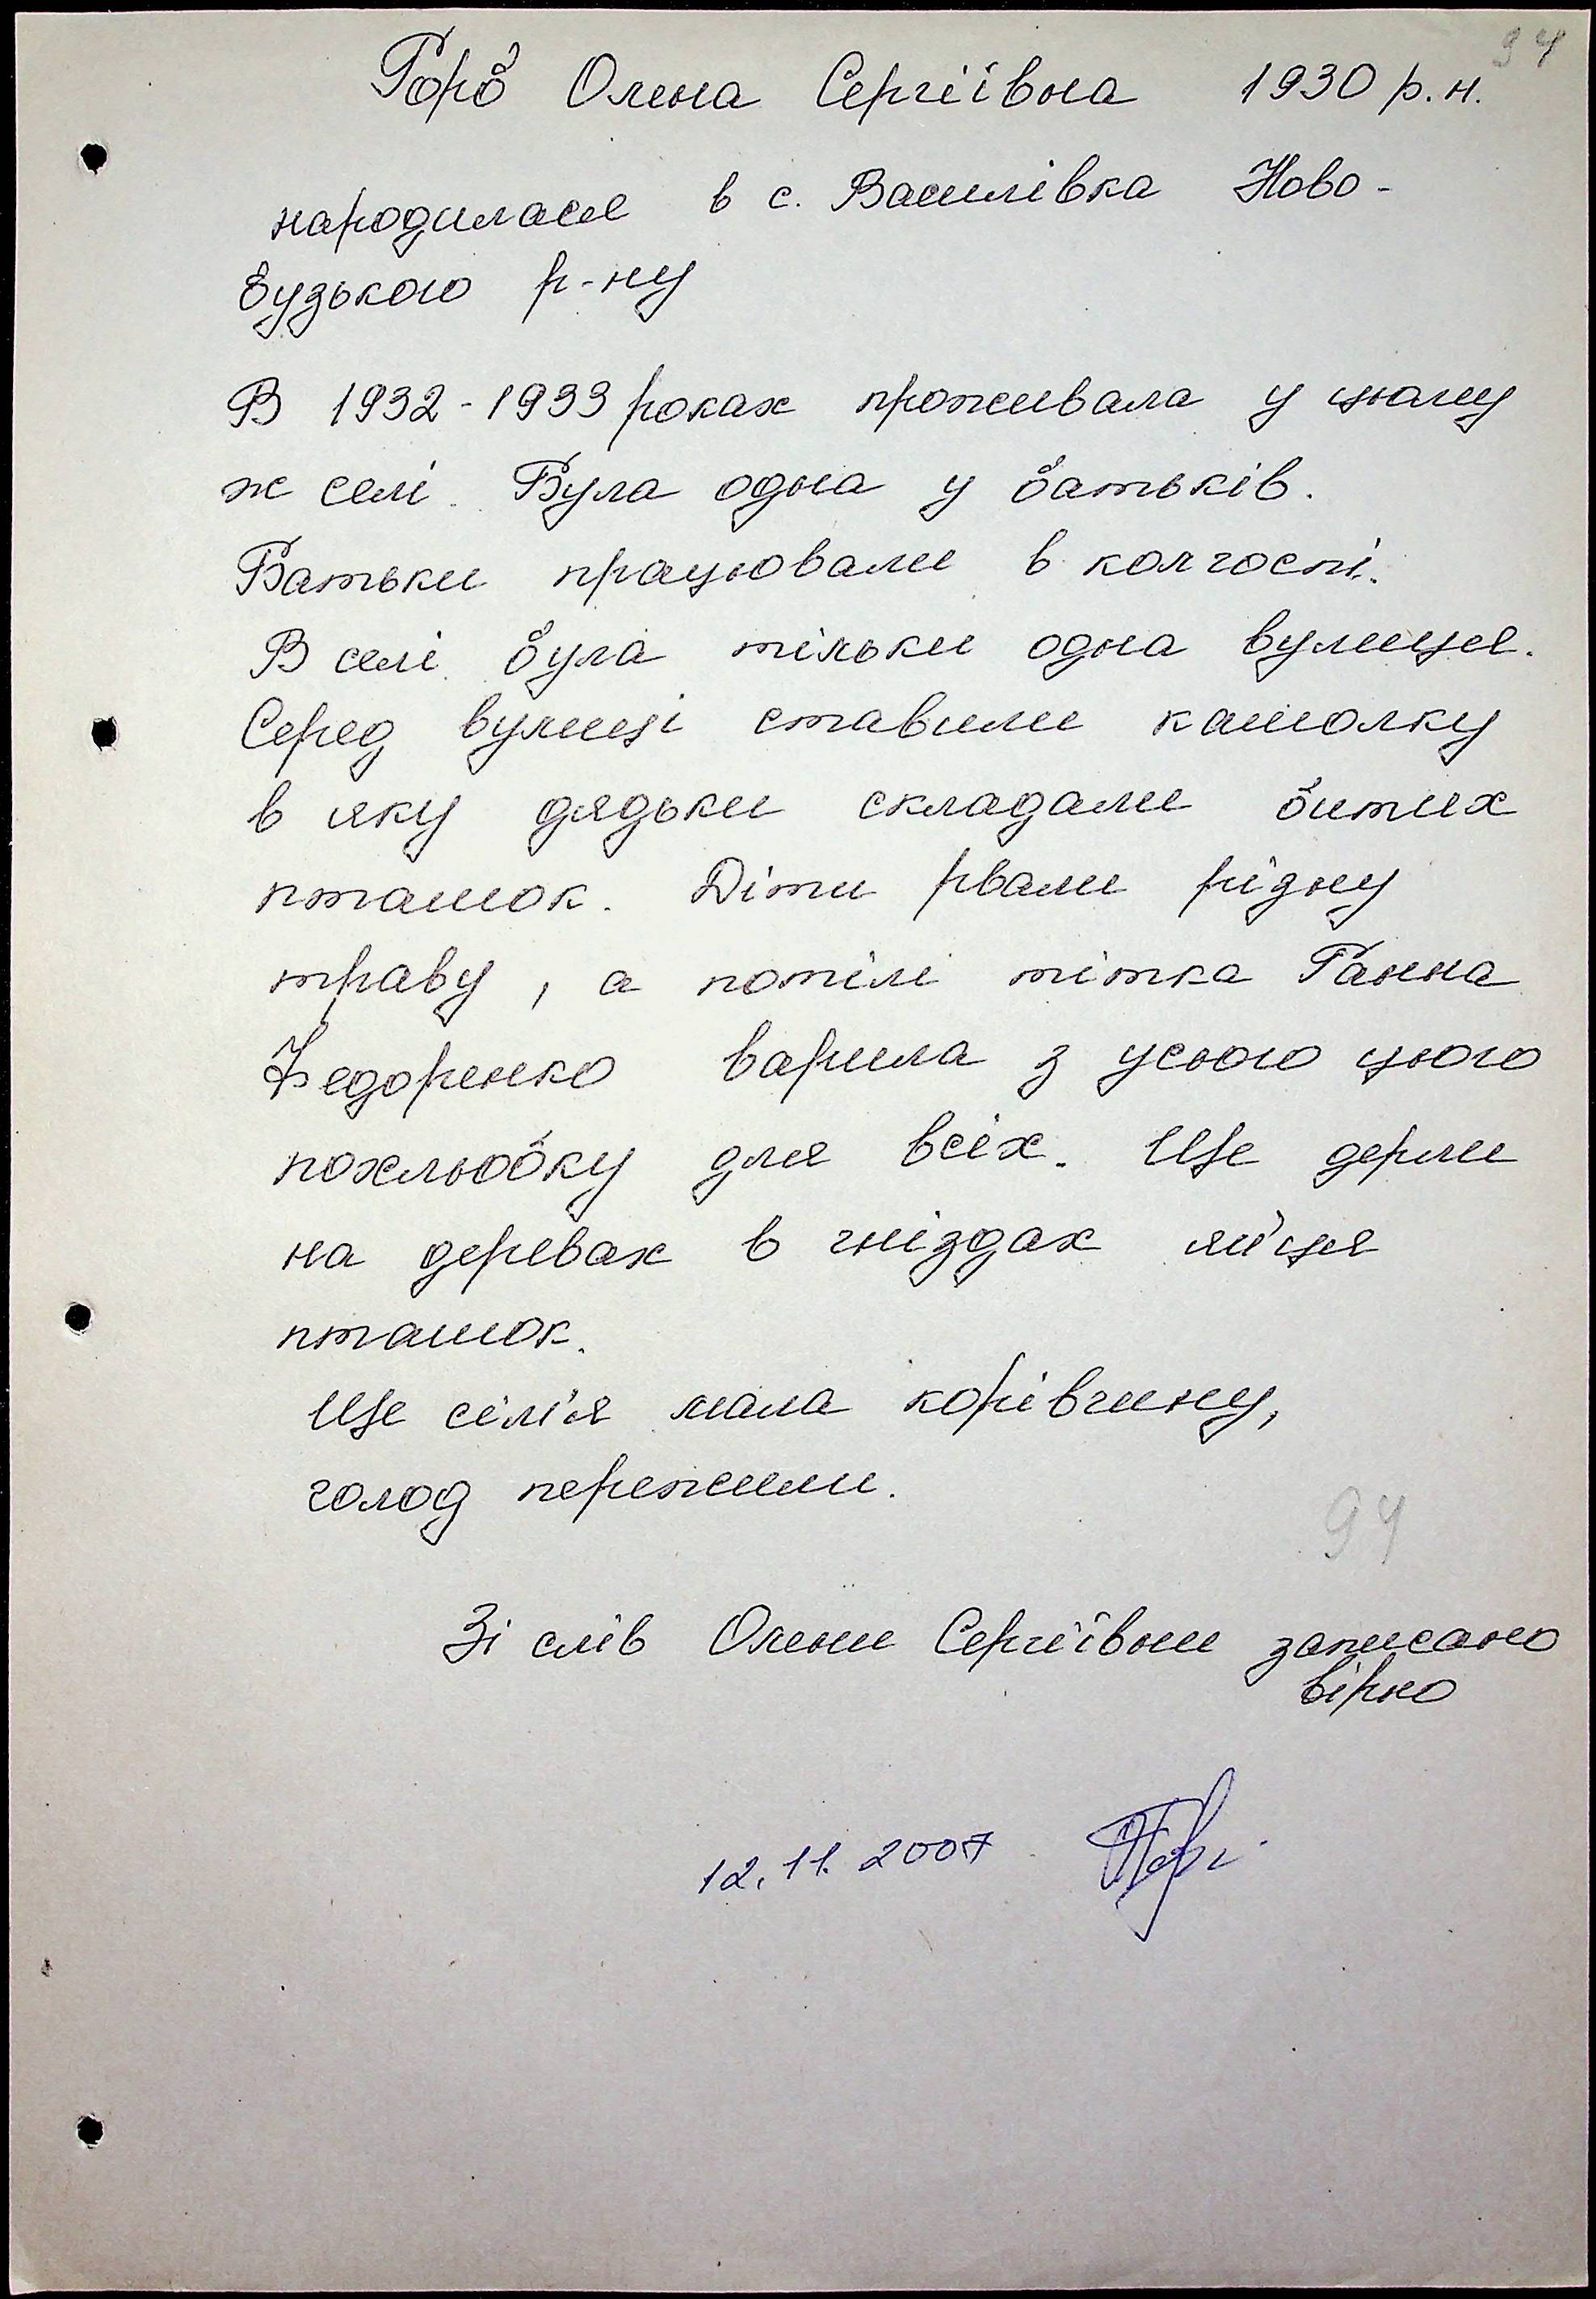 94
Горб Олена Сергіївна 1930 р.н.
народилася в с. Василівка Ново-
бузького р-ну
В 1932-1933 роках проживала у цьому
ж селі. Була одна у батьків.
Батьки працювали в колгоспі.
В селі була тільки одна вулиця.
Серед вулиці ставили кашолку
в яку дядьки складали битих
пташок. Діти рвали різну
траву, а потім тітка Ганна
Федоренко варила з усього цього
похльобку для всіх. Ще дерли
на деревах в гніздах яйця
пташок.
Ще сім'я мала корівчину,
голод пережили.
94
Зі слів Олени Сергіївни записано
вірно
12.11.2007